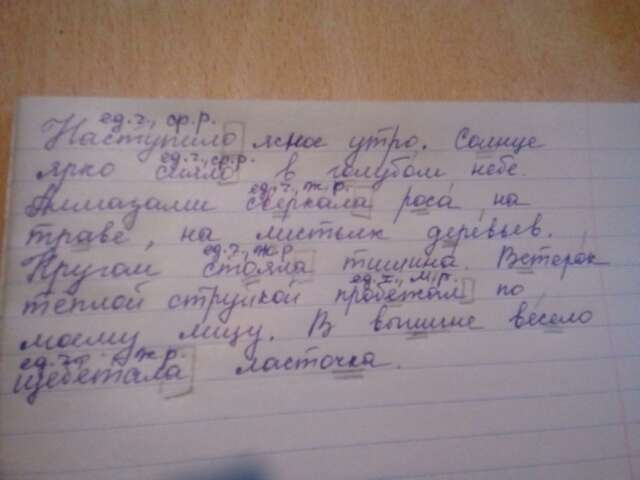 ед.ч., ср.р.
Наступило ясное утро. Солнце
ед.ч., ср.р.
ярко сияло в голубом небе.
ед.ч., ж.р.
Алмазами сверкала роса на
траве, на листьях деревьев.
ед.ч., ж.р
Кругом стояла тишина. Ветерок
ед.ч., м.р.
тёплой струйкой пробежал по
моему лицу. В вышине весело
ед.ч., ж.р.
щебетала ласточка.